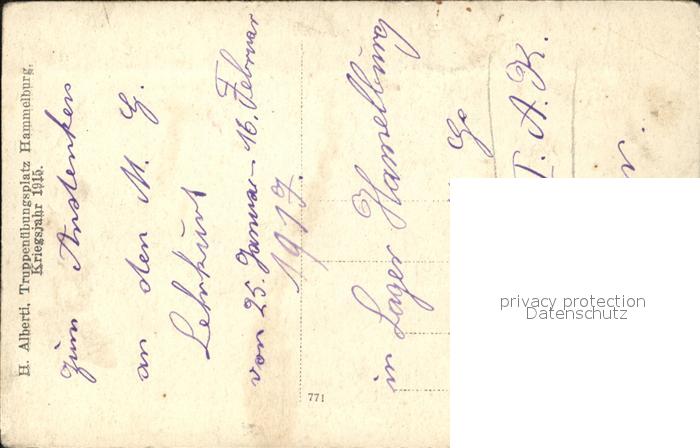 H. Alberti, Truppenübungsplatz Hammelburg.
Kriegsjahr 1915.
Zum Andenken
an den M. G.
Lehrkurs
von 25. Januar – 16. Februar
1917.
in Lager Hamelburg
771
privacy protection
Datenschutz